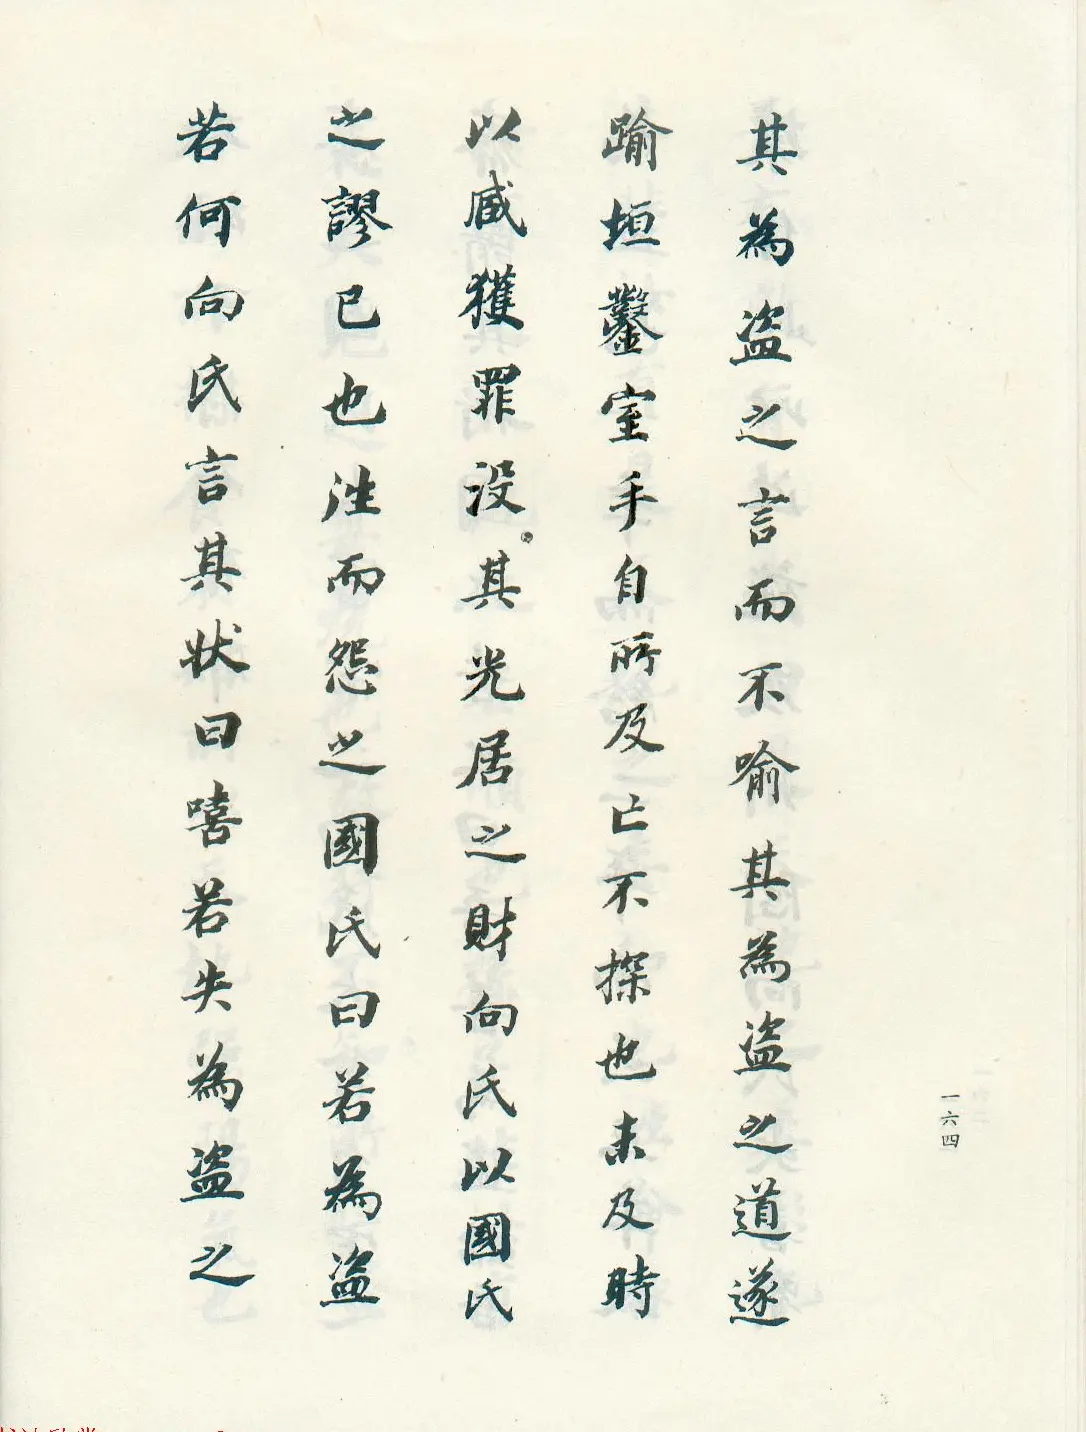 其為盜之言而不喻其為盜之道遂
踰垣鑿室手自所及亡不探也未及時
以臧獲罪沒其先居之財向氏以國氏
之謬己也往而怨之國氏曰若為盜
若何向氏言其狀曰嘻若失為盜之
一六四